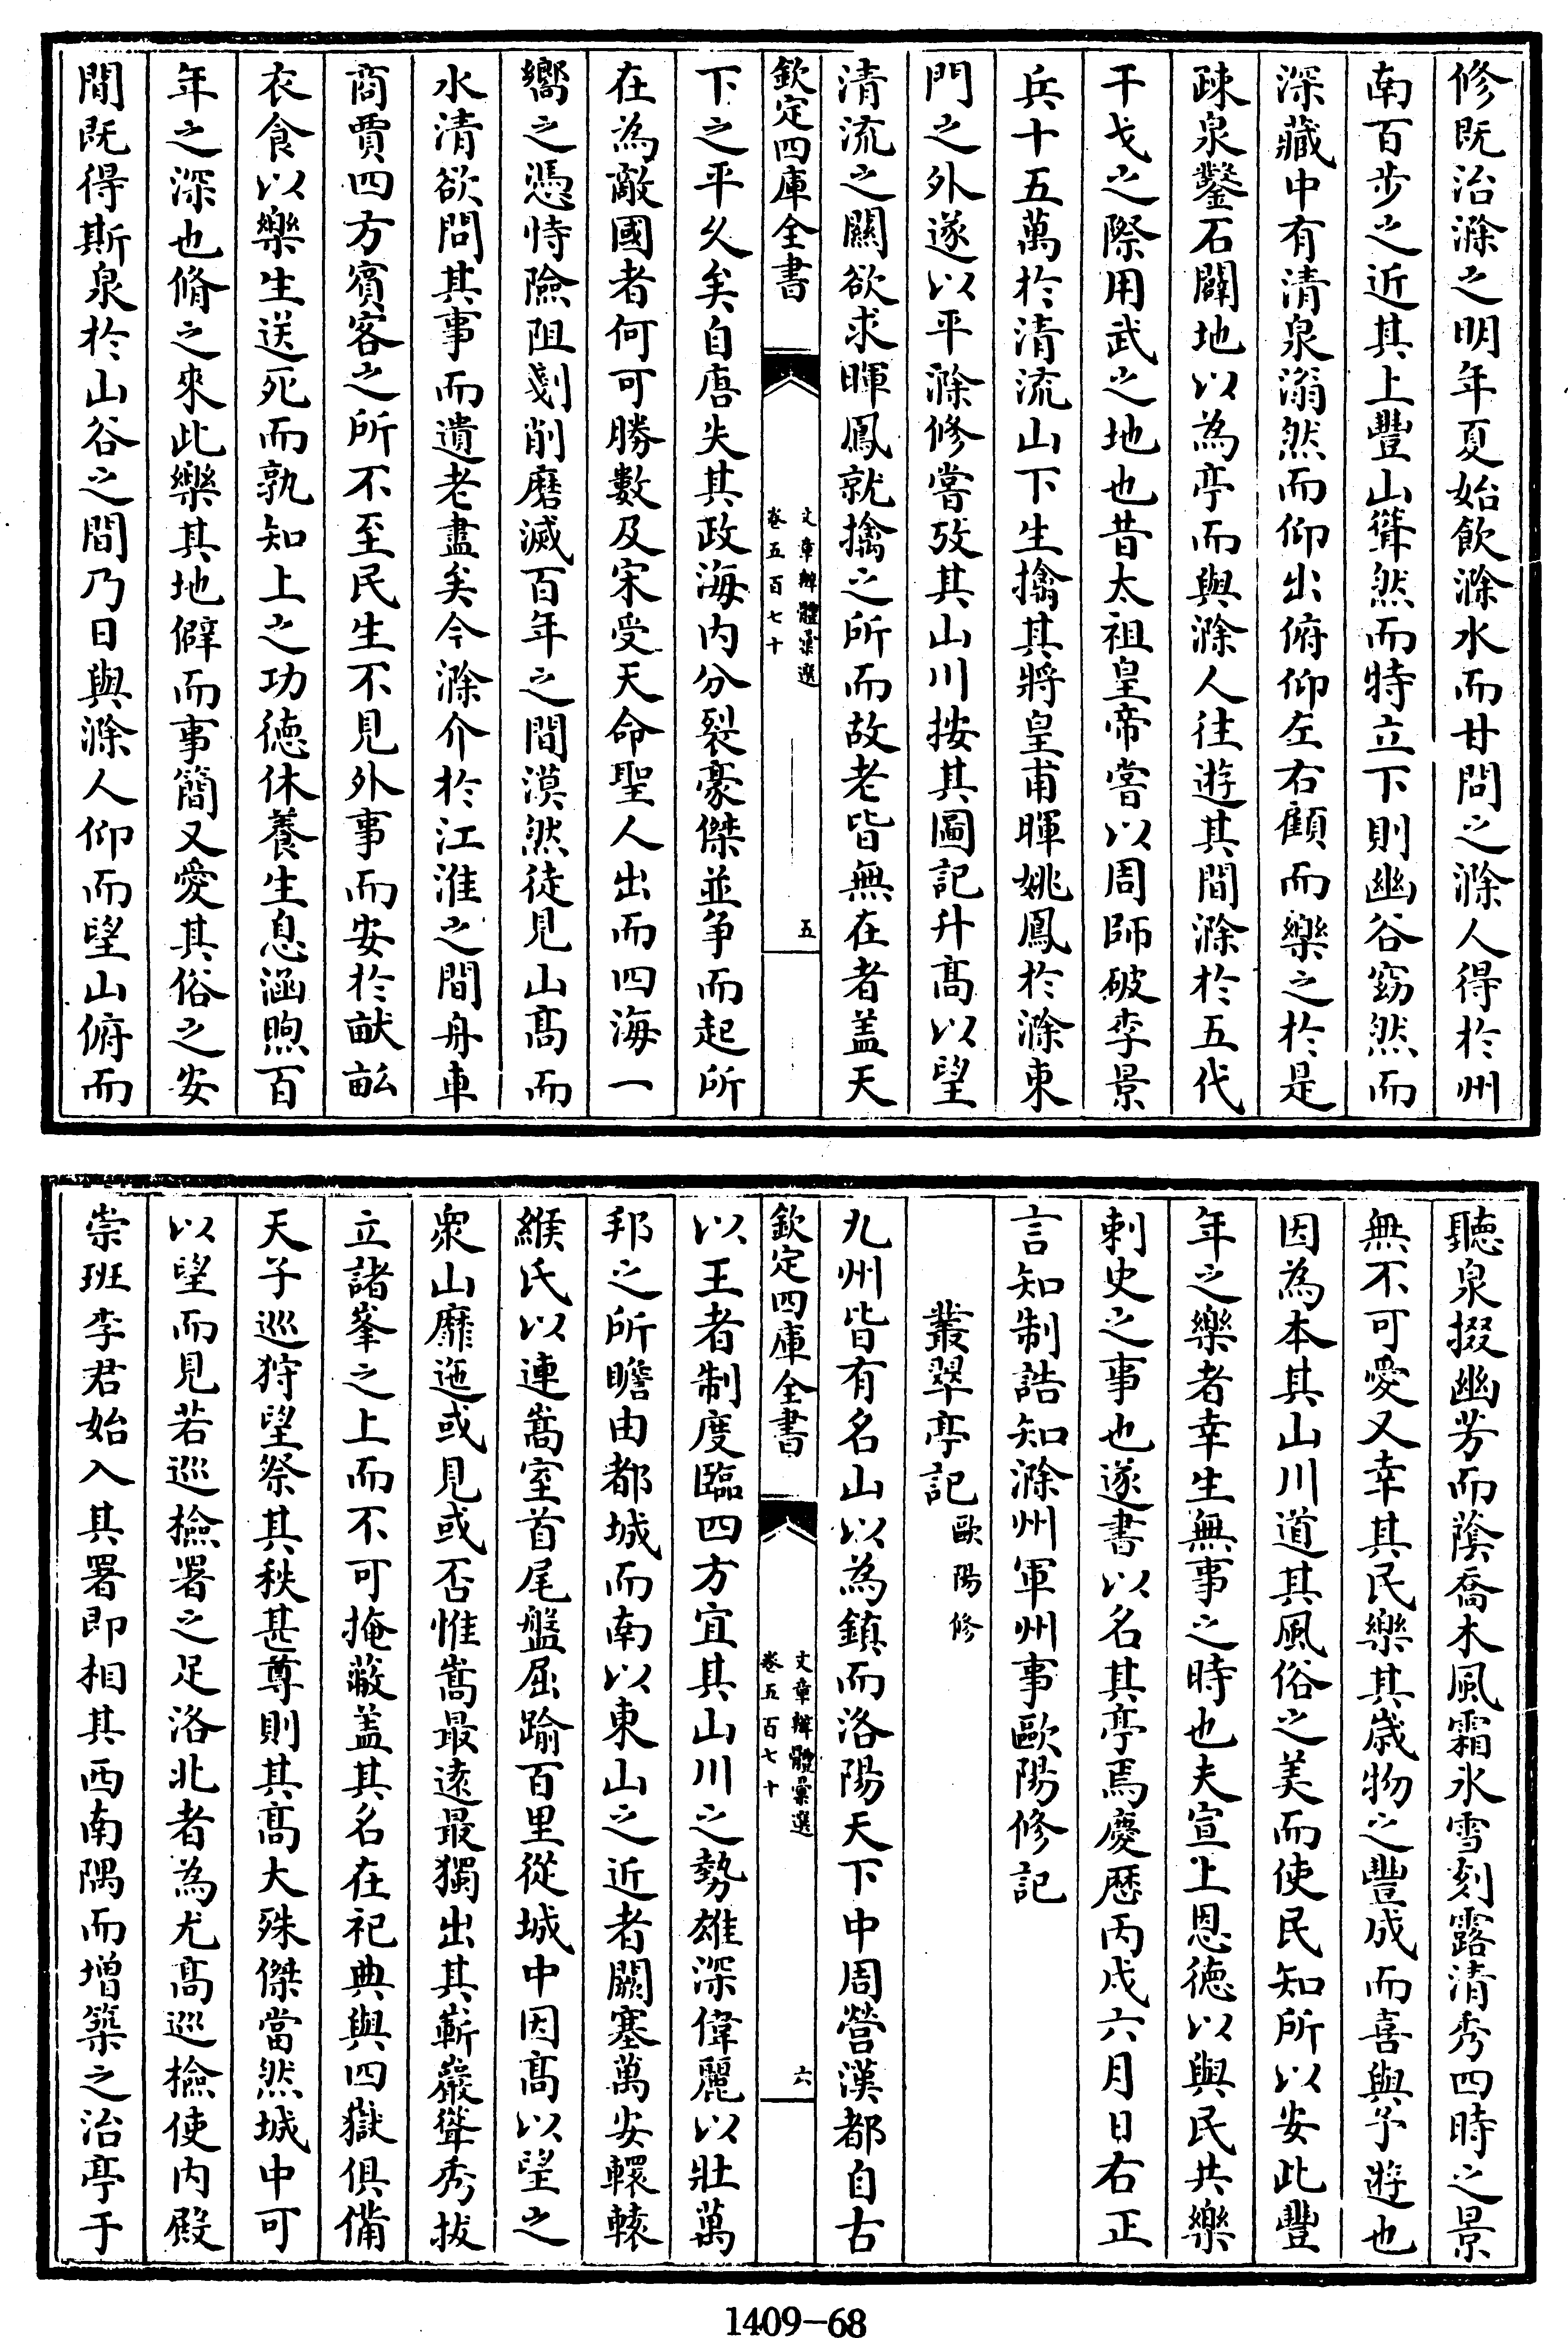 修既治滁之明年夏始飲滁水而甘問之滁人得於州
南百步之近其上豐山聳然而特立下則幽谷窈然而
深藏中有清泉滃然而仰出俯仰左右顧而樂之於是
疎泉鑿石闢地以為亭而與滁人往遊其間滁於五代
干戈之際用武之地也昔太祖皇帝嘗以周師破李景
兵十五萬於清流山下生擒其將皇甫暉姚鳳於滁東
門之外遂以平滁修嘗攷其山川按其圖記升髙以望
清流之關欲求暉鳳就擒之所而故老皆無在者盖天
欽定四庫全書
文章辨體彙選
卷五百七十
五
下之平久矣自唐失其政海内分裂豪傑並争而起所
在為敵國者何可勝數及宋受天命聖人出而四海一
嚮之憑恃險阻剗削磨滅百年之間漠然徒見山髙而
水清欲問其事而遺老盡矣今滁介於江淮之間舟車
商賈四方賓客之所不至民生不見外事而安於畎畝
衣食以樂生送死而孰知上之功徳休養生息涵煦百
年之深也脩之來此樂其地僻而事簡又愛其俗之安
閒既得斯泉於山谷之間乃日與滁人仰而望山俯而
聽泉掇幽芳而蔭喬木風霜氷雪刻露清秀四時之景
無不可愛又幸其民樂其歲物之豐成而喜與予遊也
因為本其山川道其風俗之美而使民知所以安此豐
年之樂者幸生無事之時也夫宣上恩徳以與民共樂
刺史之事也遂書以名其亭焉慶厯丙戌六月日右正
言知制誥知滁州軍州事歐陽修記
叢翠亭記 歐陽修
九州皆有名山以為鎮而洛陽天下中周營漢都自古
欽定四庫全書
文章辨體彙選
卷五百七十
六
以王者制度臨四方宜其山川之勢雄深偉麗以壯萬
邦之所瞻由都城而南以東山之近者闕塞萬安轘轅
緱氏以連嵩室首尾盤屈踰百里從城中因髙以望之
衆山靡迤或見或否惟嵩最逺最獨出其嶄巖聳秀拔
立諸峯之上而不可掩蔽盖其名在祀典與四嶽俱備
天子巡狩望祭其秩甚尊則其髙大殊傑當然城中可
以望而見若巡檢署之足洛北者為尤髙巡檢使内殿
崇班李君始入其署即相其西南隅而增築之治亭于
1409-68